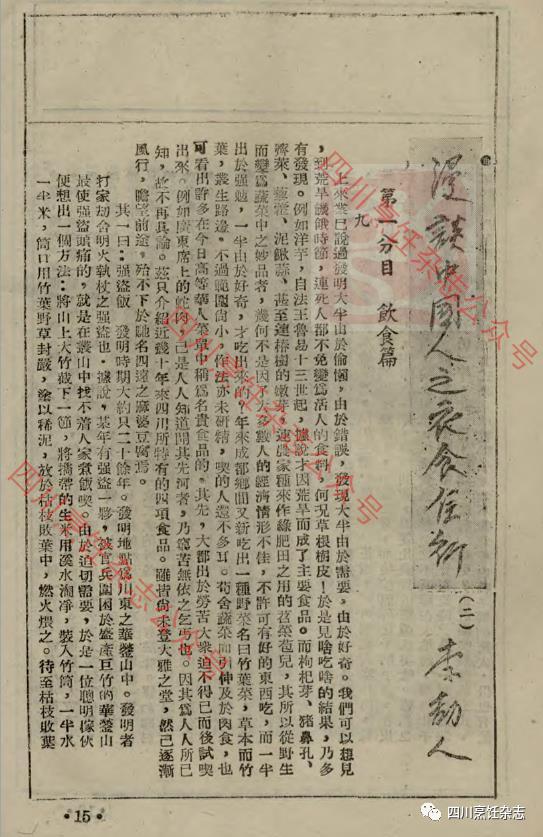 漫談中國人之衣食住行
(二)
李劼人
第一分目 飲食篇
九
上來業已說過發明大半由於偷懶,由於錯誤,發現大半由於需要,由於好奇。我們可以想見
,到荒旱饑餓時節,連死人都不免變爲活人的食料,何況草根樹皮!於是見啥吃啥的結果,乃多
有發現。例如洋芋,自法王魯易十三世起,據說才因荒旱而成了主要食品。而枸杞芽、豬鼻孔、
薺菜、藜蒿、泥鰍蒜、甚至連椿樹的嫩芽,連農家種來作綠肥田之用的苕菜苞兒,其所以從野生
而變爲蔬菜中之妙品者,幾何不是因了大多數人的經濟情形不佳,不許可有好的東西吃,而一半
出於强勉,一半由於好奇,才吃出來的?年來成都鄉間又新吃出一種野菜名曰竹葉菜,草本而竹
葉,叢生路邊。不過範圍尚小,作法亦未研精,喫的人還不多耳。苟舍蔬菜而引伸及於肉食,也
可看出許多在今日高等華人菜單中稱爲名貴食品的。其先,大都出於勞苦大衆迫不得已而後試喫
出來。例如廣東席上的蛇肉,已是人人知道開其先河者,乃窮苦無依之乞丐也。因其爲人人所已
知,故不再具論。茲只介紹近幾十年來四川所特有的四項食品。雖皆尚未登大雅之堂,然已逐漸
風行,瞻望前途,殆不下於馳名四遠之麻婆豆腐焉。
其一曰:强盜飯 發明時期大約只二十餘年。發明地點爲川東之華鎣山中。發明者
打家刧舍明火執杖之强盜也。據說,某年有强盜一夥,被官兵圍困於盛產巨竹的華鎣山
最使强盜頭痛的,就是在叢山中找不着人家煮飯喫。由於迫切需要,於是一位聰明傢伙
便想出一個方法:將山上大竹截下一節,將擕帶的生米用溪水淘凈,裝入竹筒,一半水
一半米,筒口用竹葉野草封嚴,塗以稀泥,放於枯枝敗葉中,燃火煨之。待至枯枝敗葉
•15•
四川烹饪杂志公众号
四川烹饪杂志公众号
四川烹饪杂志公众号
四川烹饪杂志